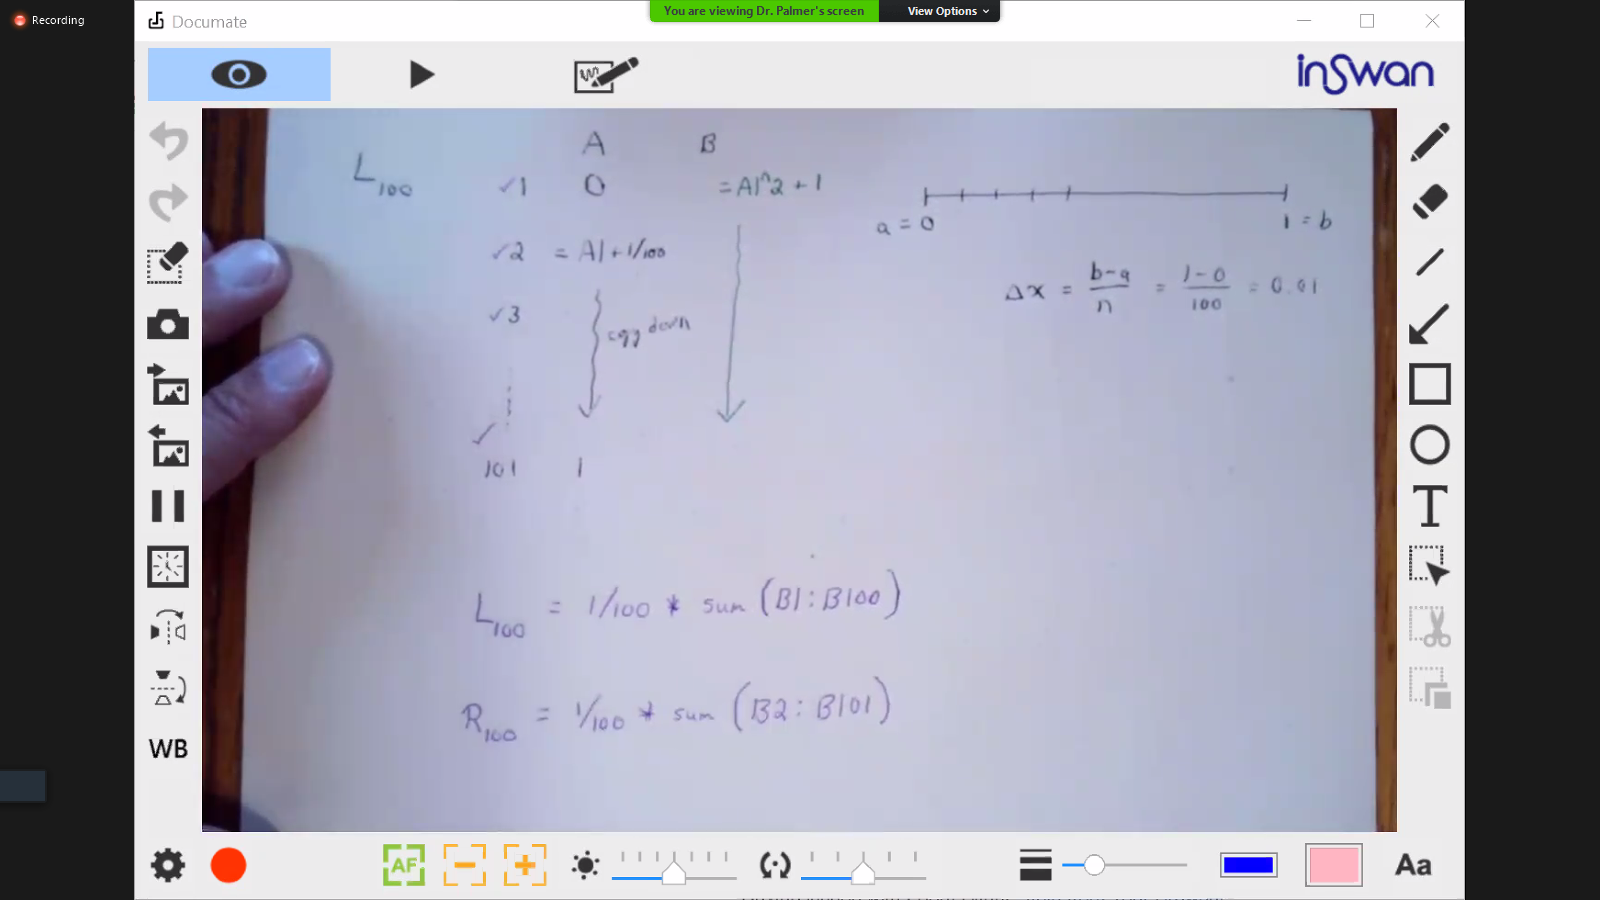 Recording
You are viewing Dr. Palmer's screen
View Options
Documate
inSwan
A B
L100 ✓1 0 = A1^2 + 1
✓2 = A1 + 1/100
✓3
copy down
✓
101 1
a = 0 1 = b
Δx = b-a/n = 1-0/100 = 0.01
L100 = 1/100 * sum (B1 : B100)
R100 = 1/100 * sum (B2 : B101)
T
WB
AF
Aa